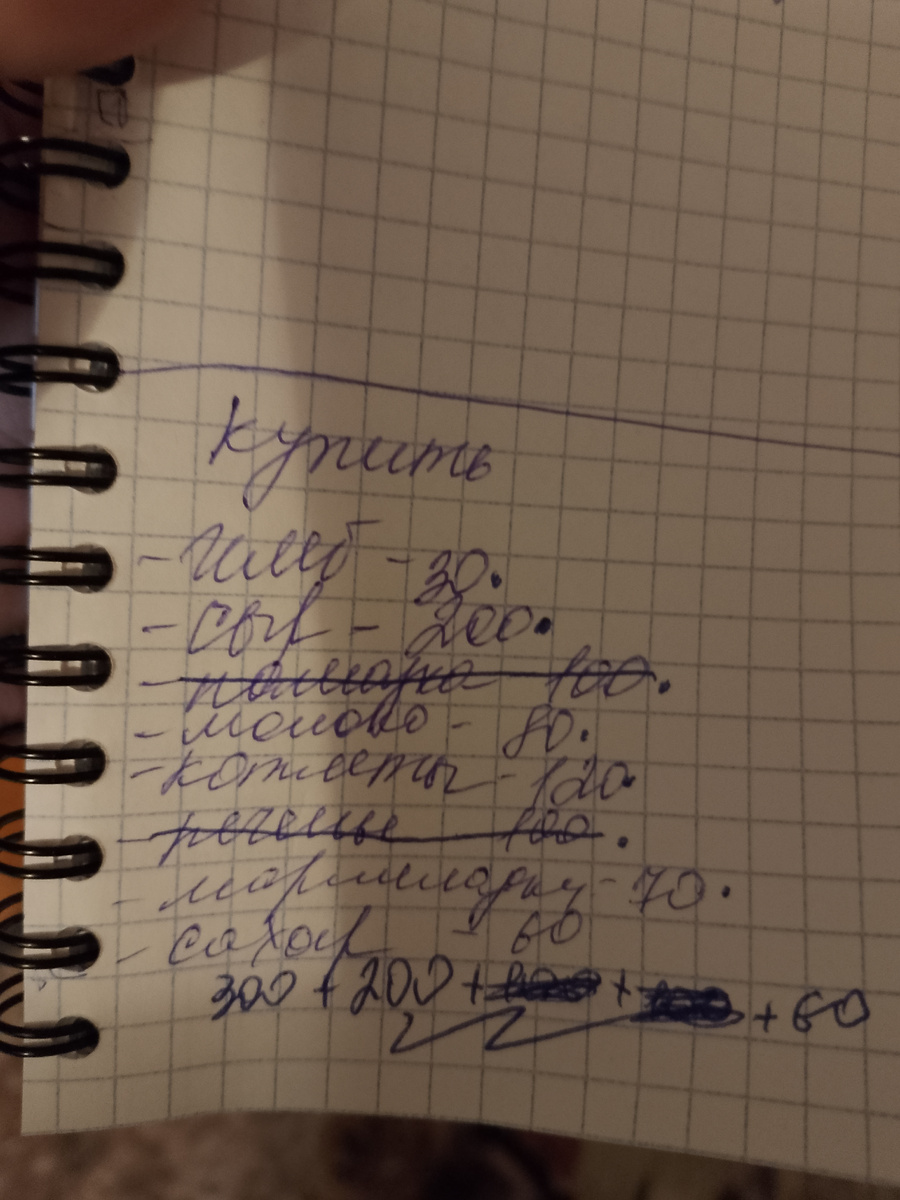 Купить
- Хлеб - 30.
- сыр - 200.
- помидка 100.
- молоко - 80.
- котлеты - 120.
- печенье 100.
- мармеладку - 70.
- сахар - 60
300 + 200 + 100 + 100 + 60